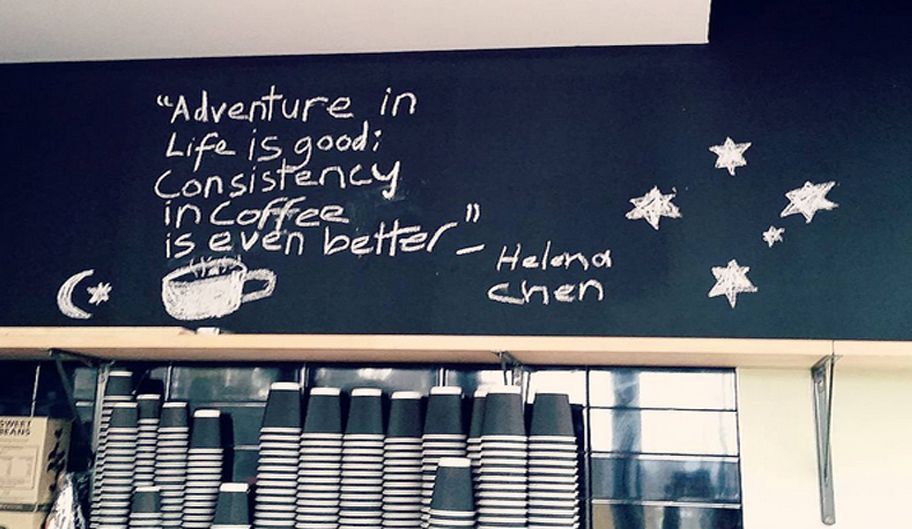 “Adventure in
Life is good;
Consistency
in Coffee
is even better” – Helena
Chen
SWEET
BEANS